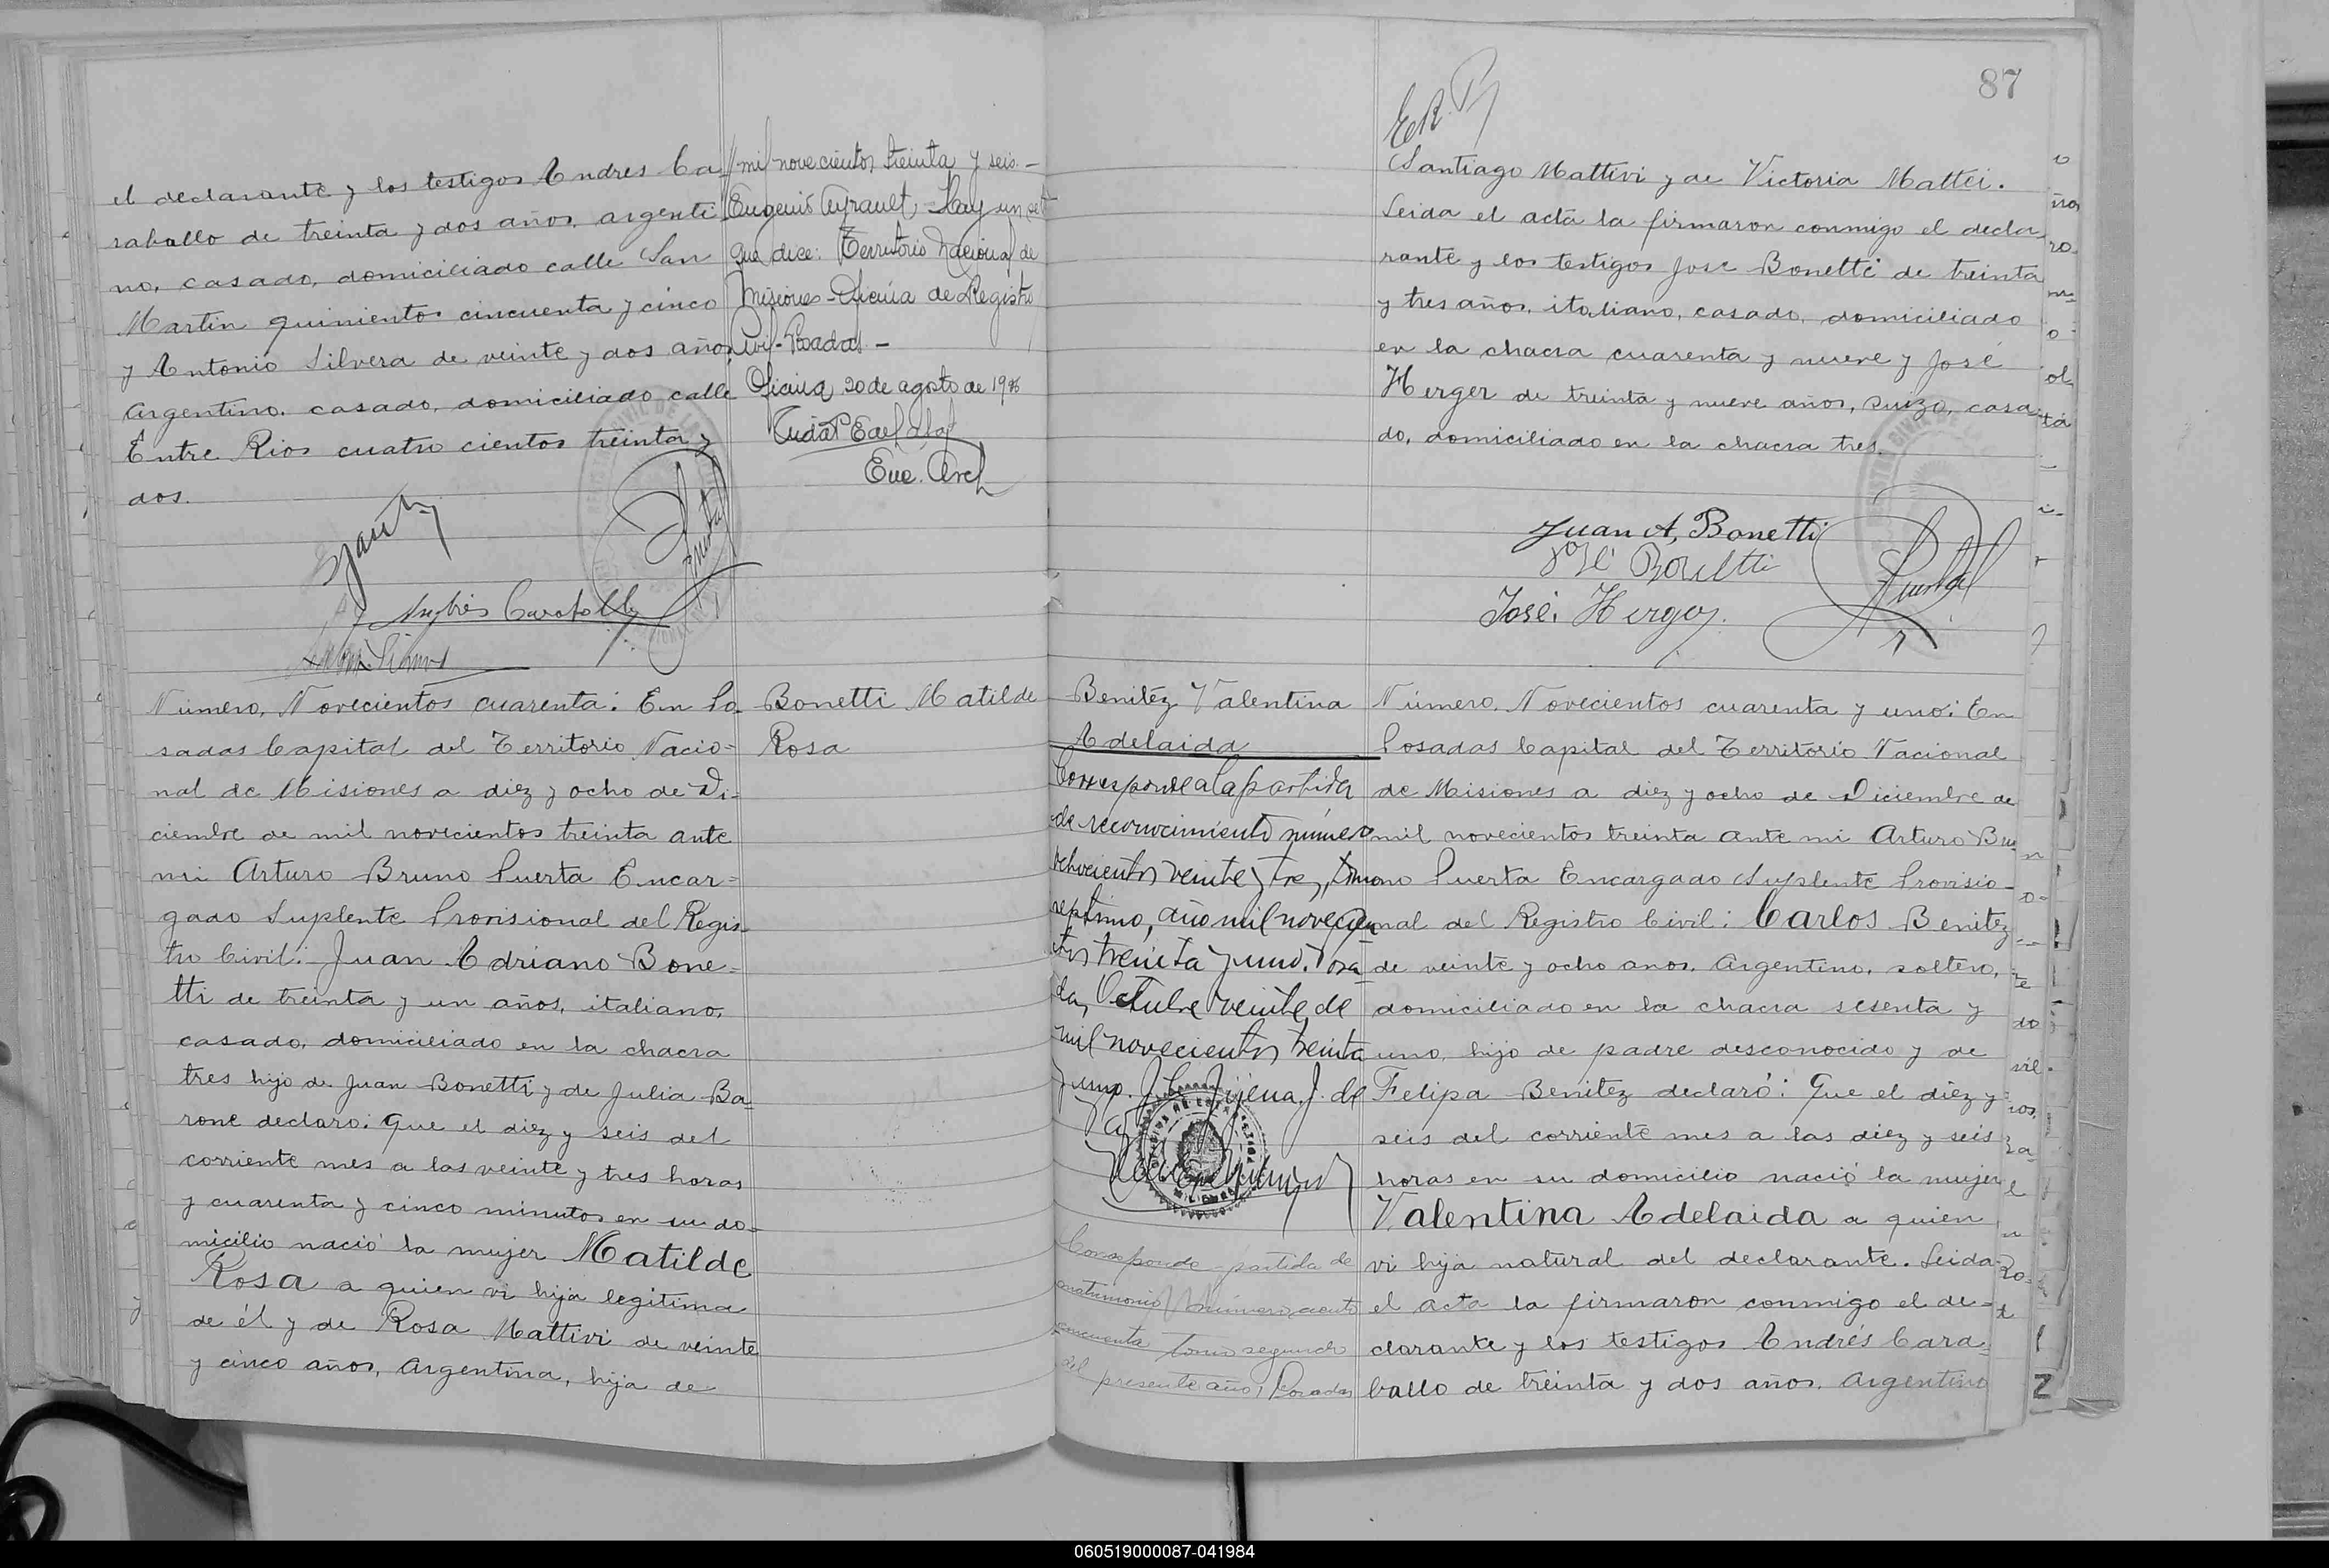 el declarante y los testigos Andres Ca-
raballo de treinta y dos años, argenti
no, casado, domiciliado calle San
Martin quinientos cincuenta y cinco
y Antonio Silvera de veinte y dos años
argentino, casado, domiciliado calle
Entre Rios cuatro cientos treinta y
dos.
mil novecientos treinta y seis.-
Eugenio Hay un
que dice: Territorio Nacional de
Misiones - Oficina de Registro
Civil - Posadas -
Oficina 20 de agosto de 1936
Número, Novecientos cuarenta: En Po-
sadas Capital del Territorio Nacio=
nal de Misiones a diez y ocho de Di=
ciembre de mil novecientos treinta ante
mi Arturo Bruno Puerta Encar=
gado Suplente Provisional del Regis-
tro Civil: Juan Adriano Bone=
tti de treinta y un años, italiano,
casado, domiciliado en la chacra
tres hijo de Juan Bonetti y de Julia Ba-
rone declaro: Que el diez y seis del
corriente mes a las veinte y tres horas
y cuarenta y cinco minutos en su do=
micilio nació la mujer Matilde
Rosa a quien vi hija legítima
de él y de Rosa Mattivi de veinte
y cinco años, Argentina, hija de
Bonetti Matilde
Rosa
87
E.R.
Santiago Mattivi y de Victoria Mattei.
Leida el acta la firmaron conmigo el decla-
rante y los testigos Jose Bonetti de treinta
y tres años, italiano, casado, domiciliado
en la chacra cuarenta y nueve y José
Herger de treinta y nueve años, suizo, casa-
do, domiciliado en la chacra tres.
Juan A, Bonetti
José Bonetti
José. Herger
Benitéz Valentina
Adelaida
Corresponde a la partida
de reconocimiento número
ochocientos veinte y tres, tomo
septimo, año mil novecien
tos treinta y uno. Posa
das, Octubre veinte de
mil novecientos treinta
y uno. J. de
Corresponde partida de
matrimonio número ciento
cincuenta tomo segundo
del presente año, Posadas
Número, Novecientos cuarenta y uno: En
Posadas Capital del Territorio Nacional
de Misiones a diez y ocho de Diciembre de
mil novecientos treinta ante mi Arturo Bru
no Puerta Encargado Suplente Provisio-
nal del Registro Civil: Carlos Benitez
de veinte y ocho anos, Argentino, soltero,
domiciliado en la chacra sesenta y
uno, hijo de padre desconocido y de
Felipa Benitez declaró: Que el diez y
seis del corriente mes a las diez y seis
horas en su domicilio nació la mujer
Valentina Adelaida a quien
vi hija natural del declarante. Leida
el acta la firmaron conmigo el de=
clarante y los testigos Andrés Cara
ballo de treinta y dos años, Argentino
060519000087-041984